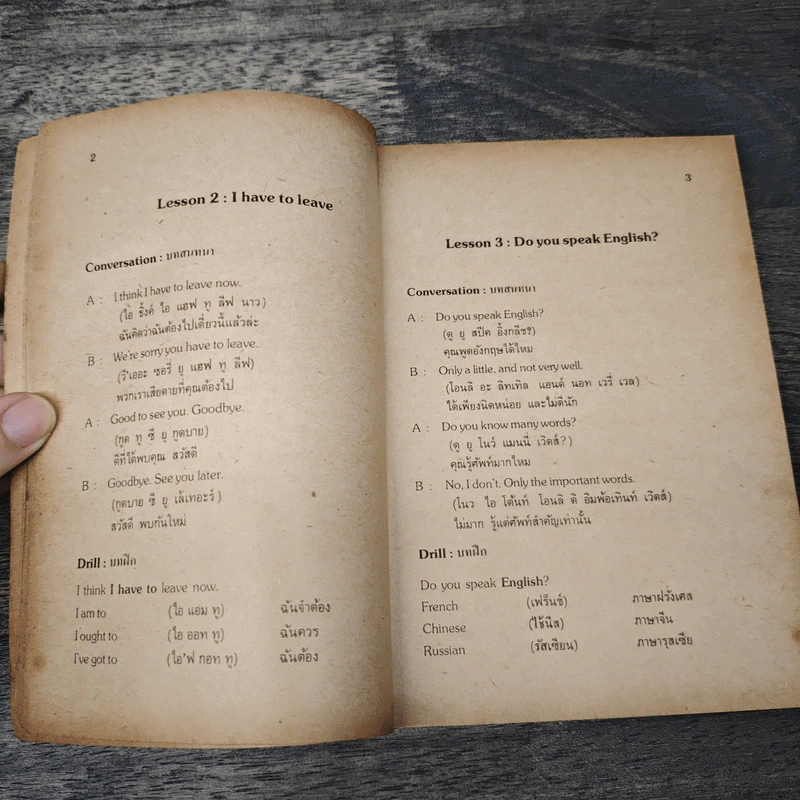 2
Lesson 2 : I have to leave
Conversation : บทสนทนา
A : I think I have to leave now.
(ไอ ธิ้งค์ ไอ แฮฟ ทู ลีฟ นาว)
ฉันคิดว่าฉันต้องไปเดี๋ยวนี้แล้วล่ะ
B : We're sorry you have to leave.
(วี'เออะ ซอรี่ ยู แฮฟ ทู ลีฟ)
พวกเราเสียดายที่คุณต้องไป
A : Good to see you. Goodbye.
(กูด ทู ซี ยู กูดบาย)
ดีที่ได้พบคุณ สวัสดี
B : Goodbye. See you later.
(กูดบาย ซี ยู เล้เทอะร์)
สวัสดี พบกันใหม่
Drill : บทฝึก
I think I have to leave now.
I am to (ไอ แอม ทู) ฉันจำต้อง
I ought to (ไอ ออท ทู) ฉันควร
I've got to (ไอ'ฟ กอท ทู) ฉันต้อง
3
Lesson 3 : Do you speak English?
Conversation : บทสนทนา
A : Do you speak English?
(ดู ยู สปีค อิ้งกลีช?)
คุณพูดอังกฤษได้ไหม
B : Only a little, and not very well.
(โอนลิ อะ ลิทเทิล แอนด์ นอท เวรี่ เวล)
ได้เพียงนิดหน่อย และไม่ดีนัก
A : Do you know many words?
(ดู ยู โนว์ แมนนี่ เวิดส์?)
คุณรู้ศัพท์มากไหม
B : No, I don't. Only the important words.
(โนว ไอ โด้นท์ โอนลิ ดิ อิมพ้อเทินท์ เวิดส์)
ไม่มาก รู้แต่ศัพท์สำคัญเท่านั้น
Drill : บทฝึก
Do you speak English?
French (เฟร็นช์) ภาษาฝรั่งเศส
Chinese (ไช้นีส) ภาษาจีน
Russian (รัสเซียน) ภาษารุสเซีย